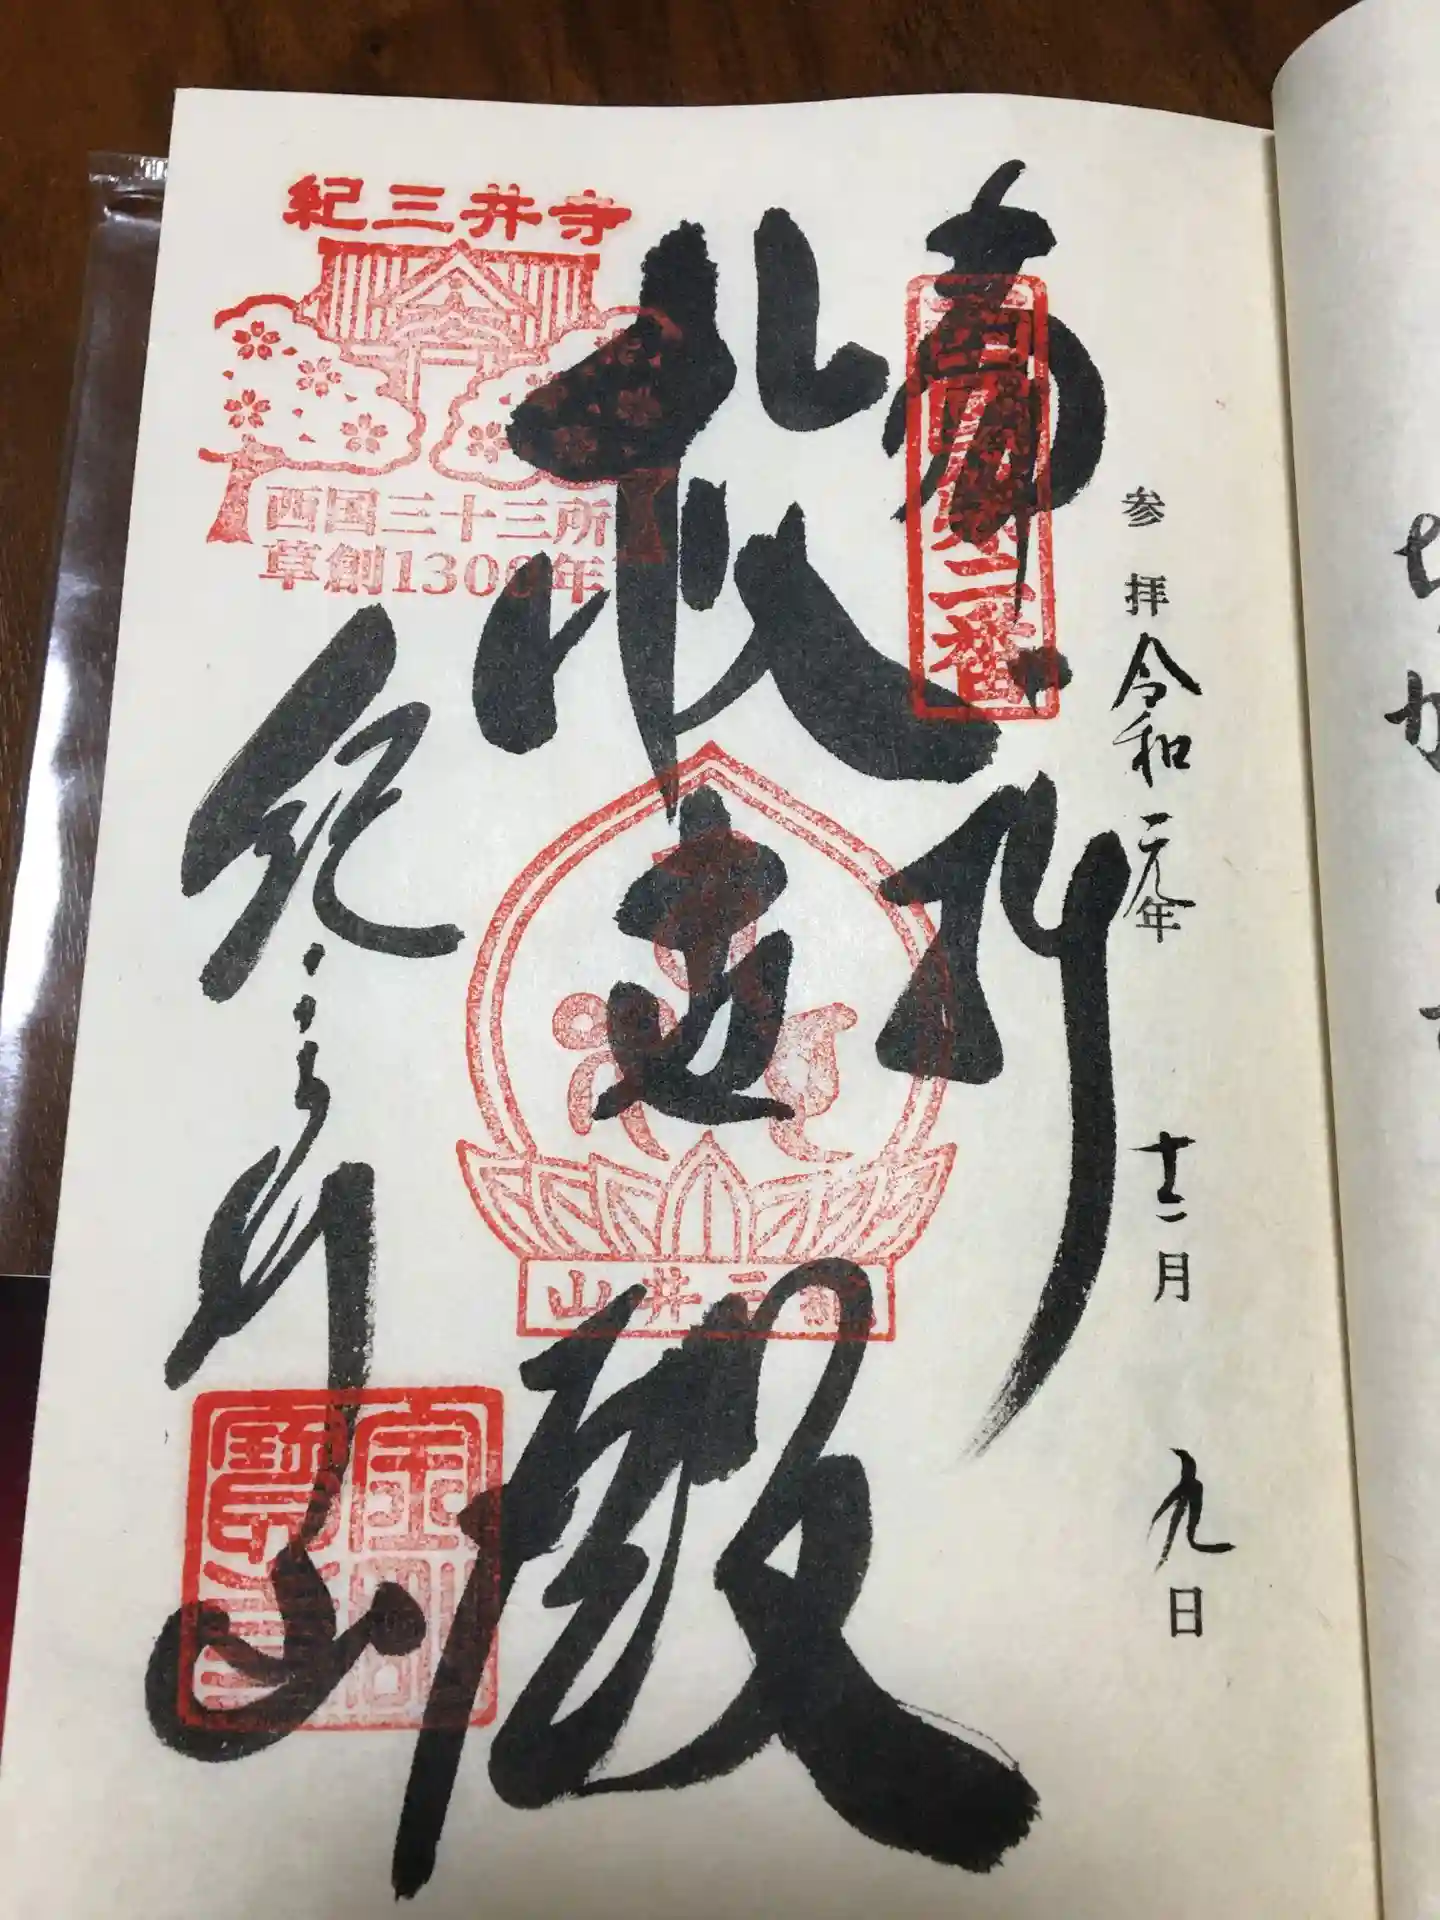 参拝 令和元年 十二月 九日
奉拝
西国第二番
救世殿
紀三井山
紀三井寺
西国三十三所
草創1300年
紀三井寺